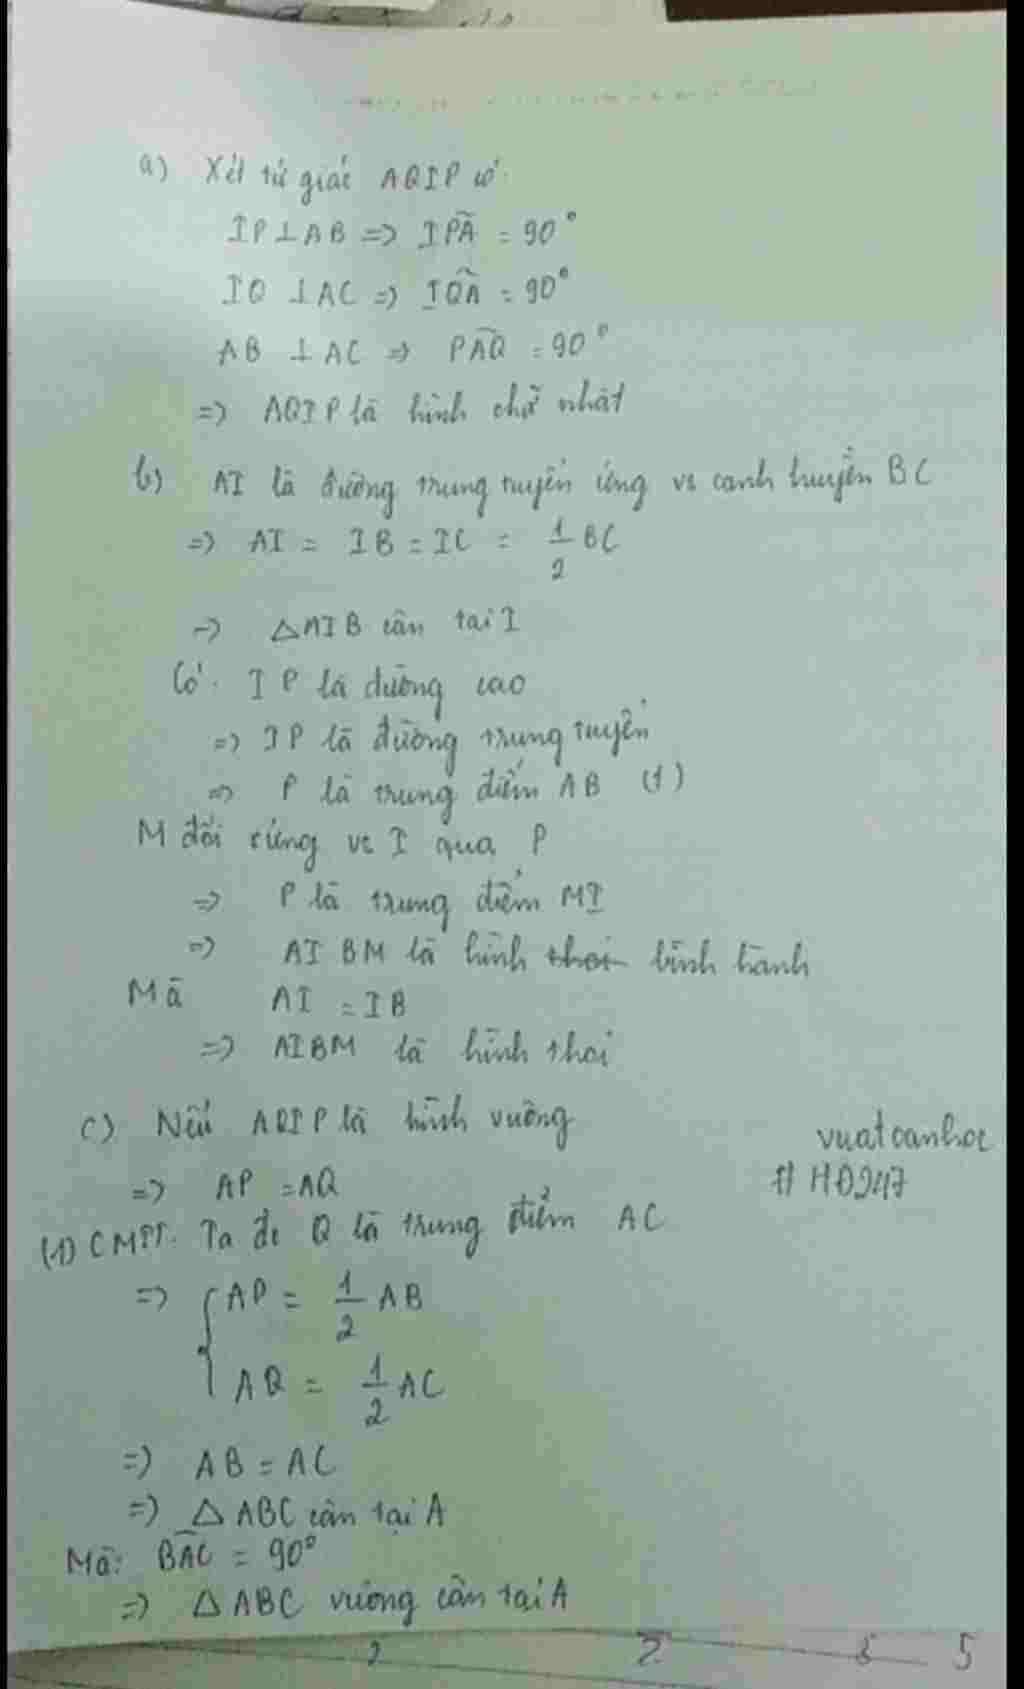 a) Xét tứ giác AQIP có
IP ⊥ AB => IPA = 90°
IQ ⊥ AC => IQA = 90°
AB ⊥ AC => PAQ = 90°
=> AQIP là hình chữ nhật
b) AI là đường trung tuyến ứng vs cạnh huyền BC
=> AI = IB = IC = 1/2 BC
=> △AIB cân tại I
Có: IP là đường cao
=> IP là đường trung tuyến
=> P là trung điểm AB (1)
M đối xứng vs I qua P
=> P là trung điểm MI
=> AIBM là hình thoi bình hành
Mà AI = IB
=> AIBM là hình thoi
c) Nếu AQIP là hình vuông
vuatoanhoc
=> AP = AQ
1) HĐ247
(1) CMTT: Ta đc Q là trung điểm AC
=> { AP = 1/2 AB
AQ = 1/2 AC
=> AB = AC
=> △ABC cân tại A
Mà: BAC = 90°
=> △ABC vuông cân tại A